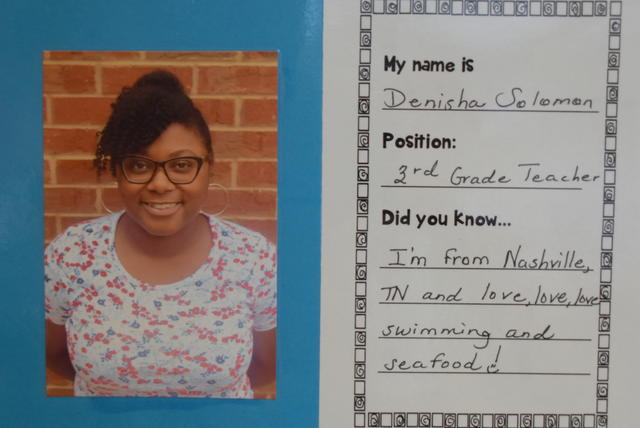 My name is
Denisha Solomon
Position:
3rd Grade Teacher
Did you know...
I'm from Nashville,
TN and love, love, love
swimming and
seafood!